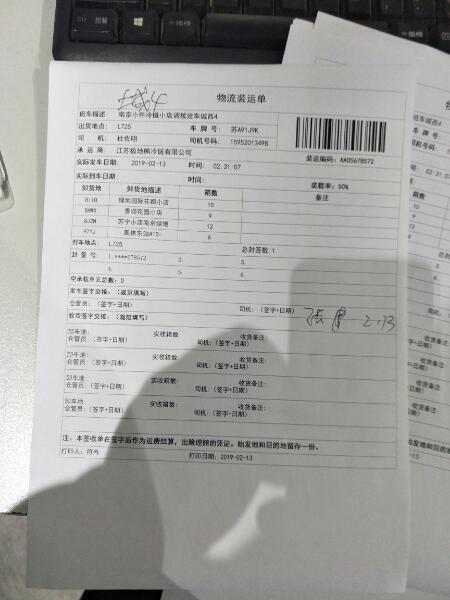 物流装运单
班车描述: 南京小件冷链小店调拨班车城西4
出货地点: L725 车牌号: 苏A91J9K
司机: 杜佐明 司机号码: 15952013498
承运商 江苏极地熊冷链有限公司 装运编码: AA05678572
实际发车日期: 2019-02-13 时间: 02:31:07
实际到车日期: 时间: 装载率: 50%
卸货地 卸货地描述 箱数 备注
绿地国际花都小店 10
香颂花园小店 9
8JZM 苏宁小店南京绿地 12
6
封车地点: L725 总封签数:1
封签号 1.****678572 2. 3.
4. 5. 6.
空承载单元总数: 0
发车签字交接: (规范填写)
仓管员: (签字+日期) 司机: (签字+日期) 2.13
收货签字交接: (规范填写)
卸车地: 实收箱数: 收货备注:
仓管员: (签字+日期) 司机: (签字+日期)
卸车地: 实收箱数: 收货备注:
仓管员: (签字+日期) 司机: (签字+日期)
卸车地: 实收箱数: 收货备注:
仓管员: (签字+日期) 司机: (签字+日期)
卸车地: 实收箱数: 收货备注:
仓管员: (签字+日期) 司机: (签字+日期)
注: 本签收单在签字后作为运费结算, 出险理赔的凭证。始发地和目的地留存一份。
打印人: 打印日期: 2019-02-13